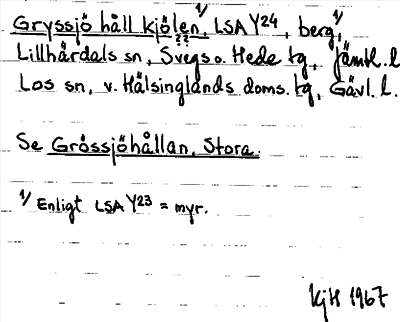 Gryssjö håll kjölen,1/ LSA Y24, berg,1/
Lillhärdals sn, Svegs o. Hede tg, Jämtl. l.
Los sn, v. Hälsinglands doms. tg, Gävl. l.
Se Gråssjöhållan, Stora.
1/ Enligt LSA Y23 = myr.
KjH 1967